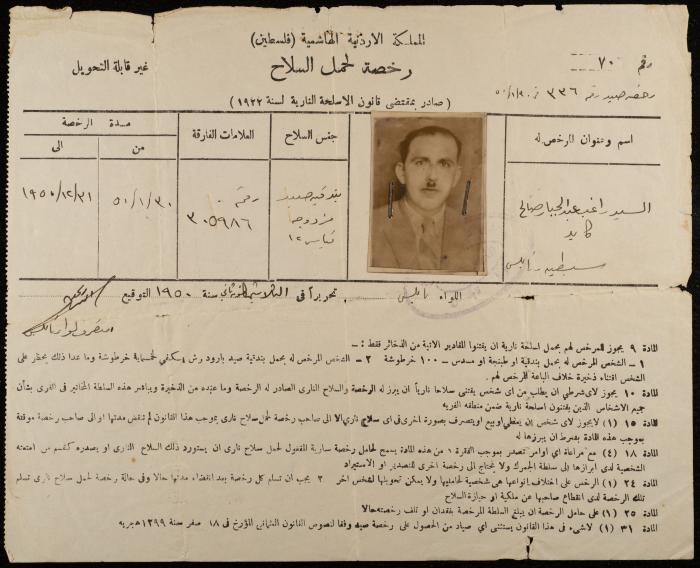 المملكة الاردنية الهاشمية (فلسطين)
رخصة لحمل السلاح
غير قابلة التحويل
رقم ٧٠
رخصة صيد رقم ٣٣٦
( صادر بمقتضى قانون الاسلحة النارية لسنة ١٩٢٢ )
اسم وعنوان المرخص له
جنس السلاح
العلامات الفارقة
مدة الرخصة
من
الى
السيد راغب عبد الجبار صالح
كايد
سبطيه نابلس
بندقية صيد
مزدوجه
عيار ١٢
رقم
٣٠٥٩٨٦
٥٠/١/٣٠
١٩٥٠/١٢/٣١
اللواء نابلس
تحريراً في سنة ١٩٥٠ التوقيع
متصرف لواء نابلس
المادة ٩ يجوز للمرخص لهم بحمل اسلحة نارية ان يقتنوا المقادير الآتية من الذخائر فقط :ـ
١ – الشخص المرخص له بحمل بندقية او طبنجة او مسدس ــ ١٠٠ خرطوشة ٢ – الشخص المرخص له بحمل بندقية صيد بارود رش خرطوشة وما عدا ذلك يحظر على
الشخص اقتناء ذخيرة خلاف الباعة المرخص لهم .
المادة ١٠ يجوز لاي شرطي ان يطلب من اي شخص يقتني سلاحا نارياً ان يبرز له الرخصة والسلاح الناري الصادر له الرخصة وما عنده من الذخيرة ويباشر هذه السلطة المخاتير في القرى بشأن
جميع الاشخاص الذين يقتنون اسلحة نارية ضمن منطقة القرية
المادة ١٥ (١) لايجوز لاي شخص ان يعطي او يبيع او يتصرف بصورة اخرى في اي سلاح ناري الا الى صاحب رخصة لحمل سلاح ناري بموجب هذا القانون لم تنقض مدتها او الى صاحب رخصة موقتة
بموجب هذه المادة بشرط ان يبرزها له
المادة ١٨ (٤) مع مراعاة اي اوامر تصدر بموجب الفقرة ١ من هذه المادة يسمح لحامل رخصة سارية المفعول لحمل سلاح ناري ان يستورد ذلك السلاح الناري او يصدره كقسم من امتعته
الشخصية لدى ابرازها الى سلطة الجمرك ولا يحتاج الى رخصة اخرى للتصدير او الاستيراد
المادة ٢٤ (١) الرخص على اختلاف انواعها هي شخصية لحامليها ولا يمكن تحويلها لشخص اخر ٢ يجب ان تسلم كل رخصة بعد انقضاء مدتها حالا وفي حالة رخصة لحمل سلاح ناري تسلم
تلك الرخصة لدى انقطاع صاحبها عن ملكية او حيازة السلاح
المادة ٢٥ (١) على حامل الرخصة ان يبلغ السلطة المرخصة بفقدان او تلف رخصته حالا
المادة ٣١ (١) لاشيء في هذا القانون يستثني اي صياد من الحصول على رخصة صيد وفقا لنصوص القانون العثماني المؤرخ في ١٨ صفر سنة ١٢٩٩ هجرية